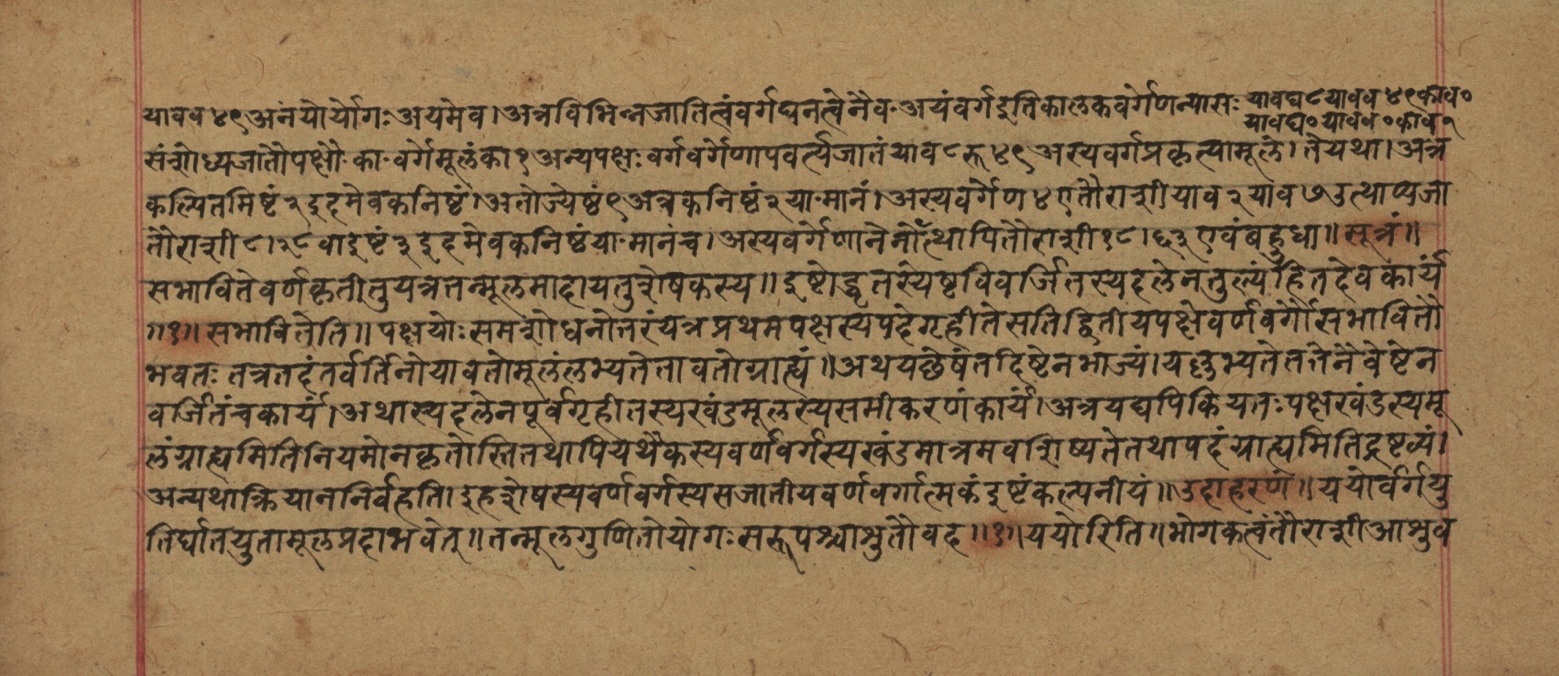 यावव ४९ अनयोर्योगः अयमेव। अत्र विभिन्नजातित्वं वर्गघनत्वेनैव॰ अयं वर्ग इति कालकवर्गेण न्यासः यावघ ८ यावव ४९ काव ०
यावघ ० यावव ० काव १
संशोध्य जातौ पक्षौ॰ का॰ वर्गमूलं का १ अन्यपक्षः वर्गवर्गेणापवर्त्य जातं याव ८ रू ४९ अस्य वर्गप्रकृत्या मूले। तैयथा। अत्र
कल्पितमिष्टं २ इदमेव कनिष्ठं। अतो ज्येष्ठं ९ अत्र कनिष्ठं २ या॰मानं। अस्य वर्गेण ४ एतौ राशी याव २ याव ७ उत्थाप्य जा
तौ राशी ८। २८ वा इष्टं ३ इदमेव कनिष्ठं या॰मानं च। अस्य वर्गेणानेनोत्थापितौ राशी १८। ६३ एवं बहुधा॥ सूत्रं॥
सभाविते वर्णकृती तु यत्र तन्मूलमादाय तु शेषकस्य॥ इष्टोद्धृतस्येष्टविवर्जितस्य दलेन तुल्यं हि तदेव कार्यं
॥१॥ सभावितेति॥ पक्षयोः समशोधनोत्तरं यत्र प्रथमपक्षस्य पदे गृहीते सति द्वितीयपक्षे वर्णवर्गौ सभावितौ
भवतः तत्र तदंतर्वर्तिनो यावतो मूलं लभ्यते तावतो ग्राह्यं॥ अथ यच्छेषं तदिष्टेन भाज्यं। यल्लभ्यते तत्तेनैवेष्टेन
वर्जितं च कार्यं। अथास्य दलेन पूर्वगृहीतस्य खंडमूलस्य समीकरणं कार्यं। अत्र यद्यपि कियतः पक्षखंडस्य मू
लं ग्राह्यमिति नियमो न कृतोस्ति तथापि यथैकस्य वर्णवर्गस्य खंडमात्रमवशिष्यते तथा पदं ग्राह्यमिति द्रष्टव्यं।
अन्यथा क्रिया न निर्वहति। इह शेषस्य वर्णवर्गस्य सजातीयवर्णवर्गात्मकं इष्टं कल्पनीयं॥ उदाहरणं॥ ययोर्वर्गयु
तिर्घातयुता मूलप्रदा भवेत्॥ तन्मूलगुणितो योगः सरूपश्चाशु तौ वद॥१॥ ययोरिति॥ भो गणक त्वं तौ राशी आशु व